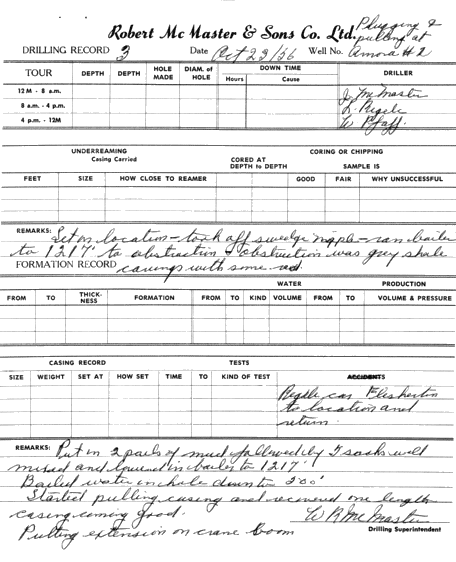 Robert Mc Master & Sons Co. Ltd. Plugging &
pulling at
DRILLING RECORD 3 Date Oct 23/56 Well No. Amora #2
TOUR DEPTH DEPTH HOLE MADE DIAM. of HOLE DOWN TIME Hours Cause DRILLER
12 M - 8 a.m. J. McMaster
8 a.m. - 4 p.m.
4 p.m. - 12M W Pfaff.
UNDERREAMING CORING OR CHIPPING
Casing Carried CORED AT DEPTH to DEPTH SAMPLE IS
FEET SIZE HOW CLOSE TO REAMER GOOD FAIR WHY UNSUCCESSFUL
REMARKS: Set on location - took off swedge nipple - ran bailer
to 1217' to obstruction - obstruction was grey shale
FORMATION RECORD cavings with some red.
WATER PRODUCTION
FROM TO THICK-NESS FORMATION FROM TO KIND VOLUME FROM TO VOLUME & PRESSURE
CASING RECORD TESTS
SIZE WEIGHT SET AT HOW SET TIME TO KIND OF TEST ACCIDENTS
car Flesherton
to location and
return.
REMARKS: Put in 2 pails of mud followed by 5 sacks well
mixed and lowered in bailer to 1217'
Bailed water in hole down to 200'
Started pulling casing and recovered one length
casing coming good. W R McMaster
Drilling Superintendent
Putting extension on crane boom